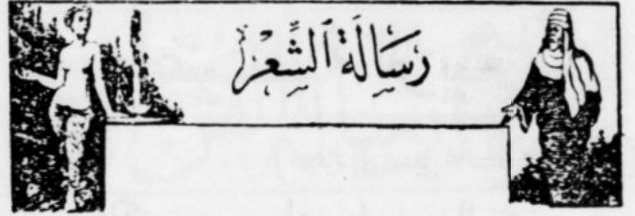 رِسَالَةُ الشِّعْر